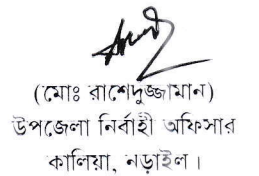 (মোঃ রাশেদুজ্জামান)
উপজেলা নির্বাহী অফিসার
কালিয়া, নড়াইল।